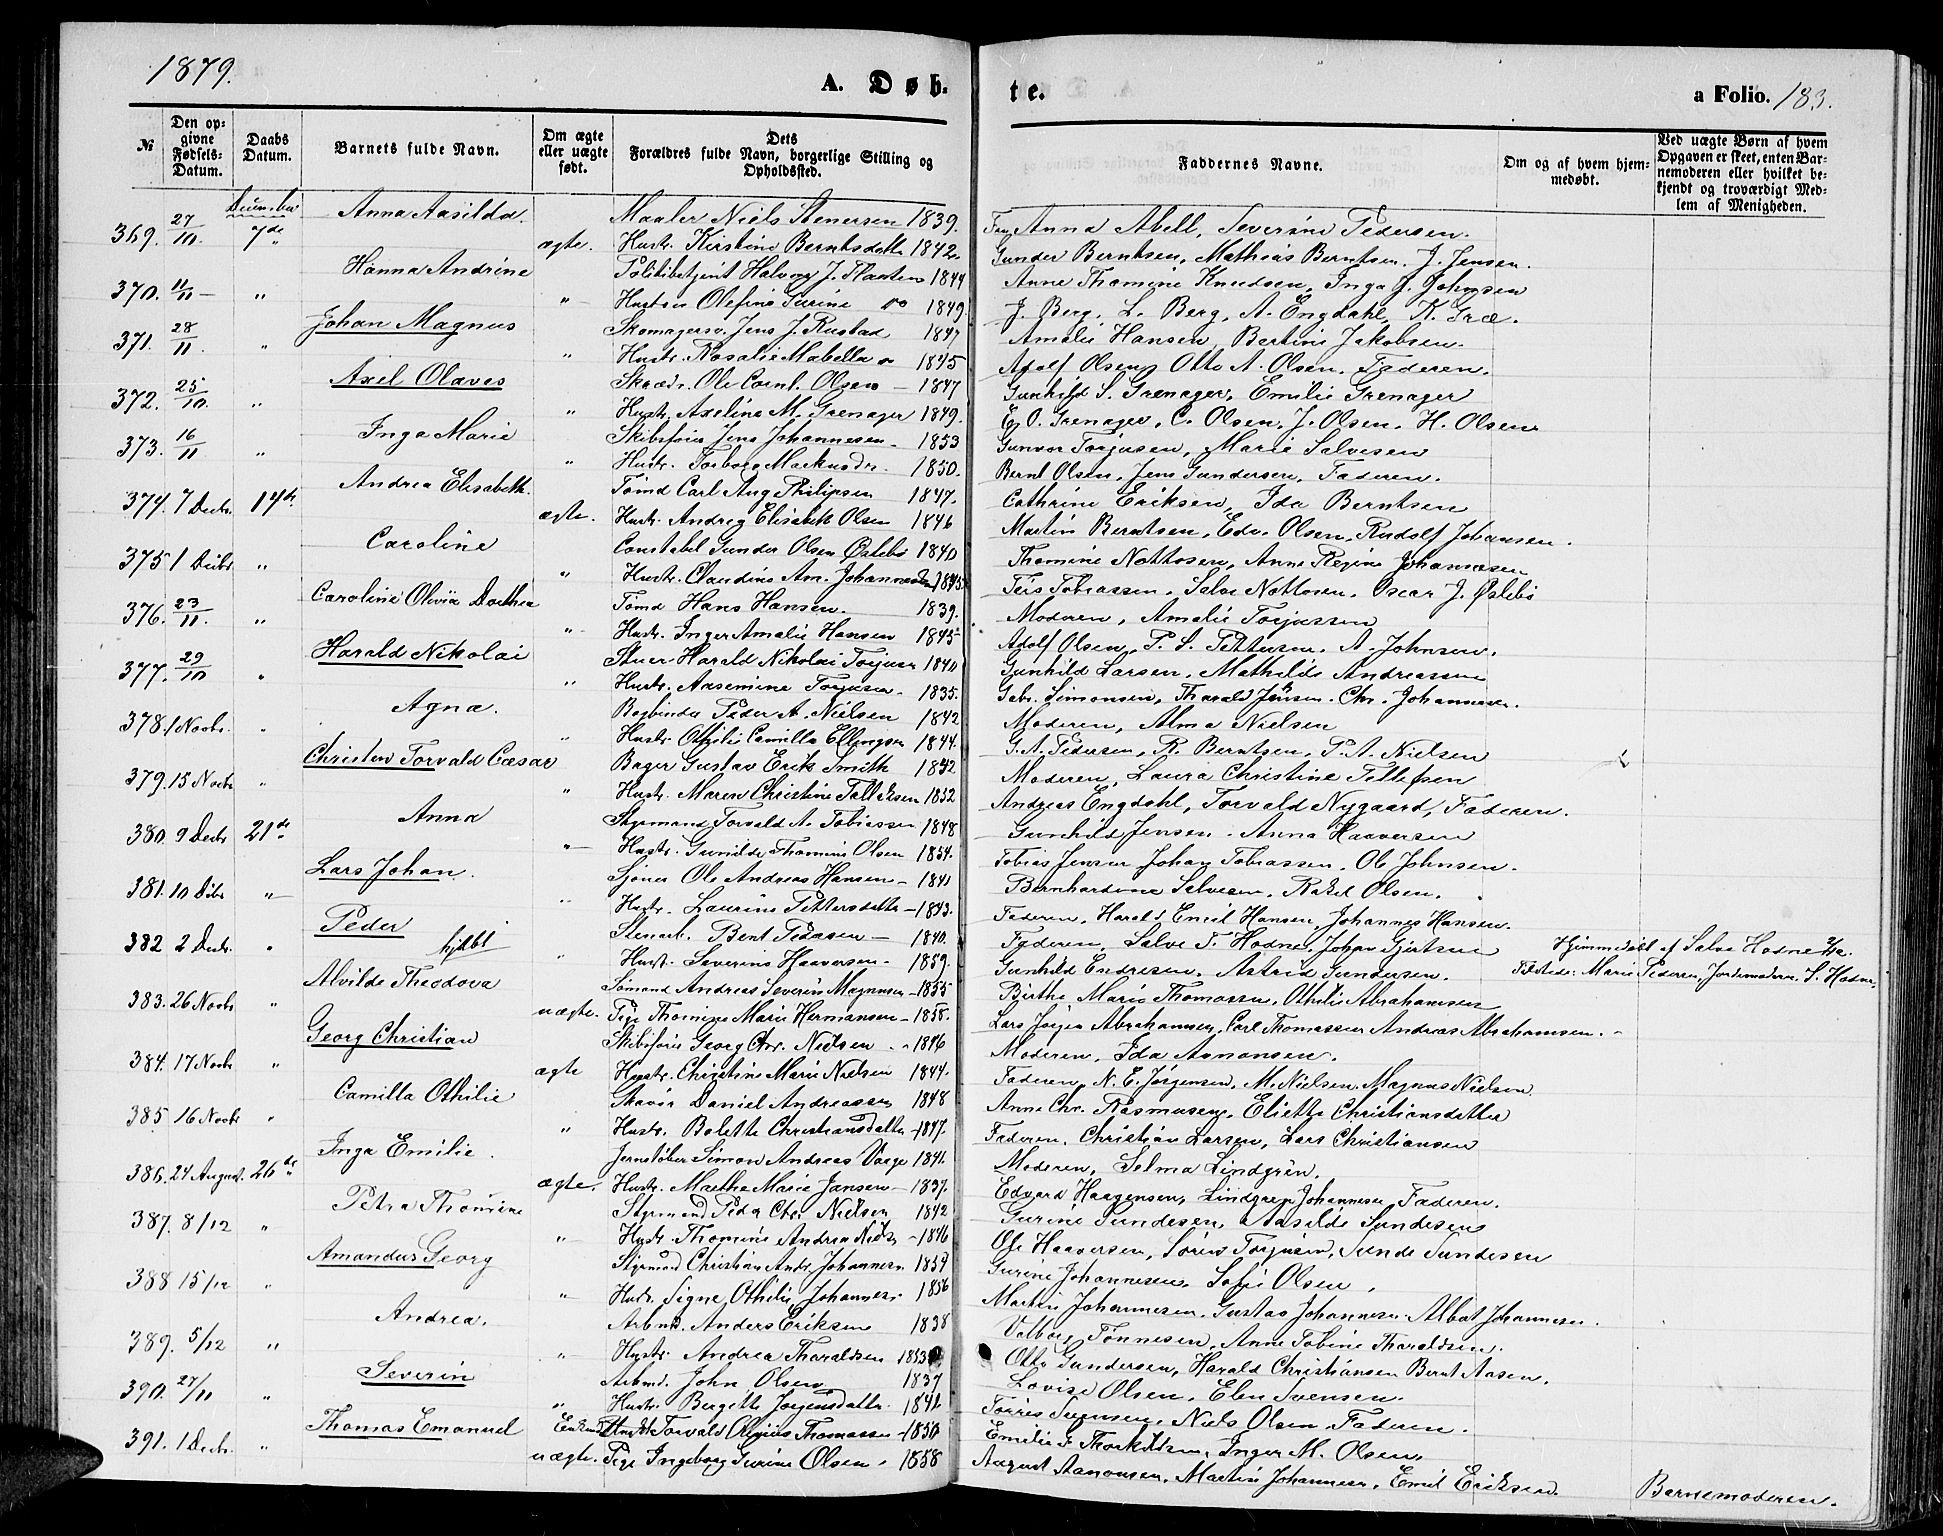 1879.
A. Døb-
te.
a Folio. 183.
№
Den op-
givne
Fødsels-
Datum.
Daabs
Datum.
Barnets fulde Navn.
Om ægte
eller uægte
født.
Dets
Forældres fulde Navn, borgerlige Stilling og
Opholdssted.
Faddernes Navne.
Om og af hvem hjem-
medøbt.
Ved uægte Børn af hvem
Opgaven er skeet, enten Bar-
nemoderen eller hvilket be-
kjendt og troværdigt Med-
lem af Menigheden.
369. 27/10. December 7de Anna Aasilda. ægte.
Maaler Niels Stenersen 1839.
Hustr. Kirstine Berntsdatte 1842.
Anna Abell, Severine Pedersen.
Gunder Berntsen, Mathias Berntsen. J. Jensen.
370. 11/11 " Hanna Andrine "
Politibetjent Halvor J. 1844
Hustru Olefine Gurine do 1849.
Anne Thomine Knudsen, Inga J. Johnsen
J. Berg, L. Berg, A. Engdahl, K. Græ.
371. 28/11. " Johan Magnus "
Skomagersv. Jens J. Rustad 1847
Hustr. Rosalie Mabella 1845
Amalie Hansen, Bertine Jakobsen.
Adolf Olsen, Otto A. Olsen. Faderen.
372. 25/10. " Axel Olaves "
Ole Cornl. Olsen 1847
Hustr. Axeline M. Grenager 1849.
Gunhild S. Grenager, Emilie Grenager
E. O. Grenager, C. Olsen, J. Olsen. H. Olsen.
373. 16/11 " Inga Marie "
Skibsfører Jens Johannesen 1853
Hustr. Torborg 1850.
Gunvor Torjusen, Marie Salvesen
Bernt Olsen, Jens Gundersen, Faderen.
374. 7 Decbr. 14de Andrea Elisabeth. ægte.
Tømd Carl Aug Philipsen 1847.
Hustr. Andrea Elisabeth Olsen 1846
Cathrine Eriksen, Ida Berntsen
Martin Berntsen, Edv. Olsen, Rudolf Johansen.
375 1 Decbr " Caroline "
Constabel Gunder Olsen Øslebø 1840
Hustr. Claudine Am. Johannesdtr 1845
Thomine Nottosen, Anne Regine Johannesen
Teis Tobiassen. Salve Nottosen, Oscar J. Øslebø
376. 23/11. " Caroline Olivia Dorthea "
Tømd Hans Hansen. 1839.
Hustr. Inger Amalie Hansen 1845
Moderen, Amalie Torjussen
Adolf Olsen, P. S. Pettersen. A. Johnsen.
377. 29/10 " Harald Nikolai "
Stuer Harald Nikolai Torjusen 1840
Hustr. Aasemine Torjusen. 1835.
Gunhild Larsen. Mathilde Andreassen
Gabr. Simonsen, Tharald Jensen. Chr. Johannesen.
378. 1 Novbr. " Agna. "
Bogbinder Peder A. Nielsen 1842
Hustr. Othilie Camilla Ellingsen 1844.
Moderen, Alma Nielsen
G. A. Pedersen, R. Berntsen, P. A. Nielsen
379. 15 Novbr " Christen Torvald Cæsar "
Bager Gustav Erik Smith 1842
Hustr. Maren Christine Tellefsen 1852
Moderen, Laura Christine Tellefsen
Andreas Engdahl, Torvald Nygaard, Faderen.
380. 9 Decbr 21de Anna "
Styrmand Torvald A. Tobiassen 1848
Hustr. Gunilde Thomine Olsen 1854.
Gunhild Jensen. Anna Haaversen
Tobias Jensen Johan Tobiassen. Ole Johnsen.
381. 10 Dcbr " Lars Johan. "
Ole Andreas Hansen 1841
Hustr. Laurine Pettersdatte 1843.
Bernhardine Salvesen. Rakel Olsen.
Faderen, Harald Emil Hansen, Johannes Hansen.
382 2 Decbr. " Peder hjdbt "
Stenarb. Bent Pedersen 1840.
Hustr. Severine Haaversen 1859.
Faderen, Salve T. Hodne, Johan Gjertsen
Gunhild Endresen. Astrid Gundersen.
Hjemmedøbt af Salve Hodne
Tilstede: Marie Pedersen, Jordemoderen, S. Hodne
383. 26 Novbr " Alvilde Theodora uægte.
Sømand Andreas Severin Magnusen 1855
Pige Thomine Marie Hermansen 1858.
Birthe Marie Thomassen, Othilie Abrahamsen
Lars Jørgen Abrahamsen, Carl Thomassen Andreas Abrahamsen.
384. 17 Novbr " Georg Christian ægte
Skibsfører Georg Chr. Nielsen 1846
Hustr. Christine Marie Nielsen 1844.
Moderen, Ida Aanonsen.
Faderen, N. E. Jørgensen, M. Nielsen, Magnus Nielsen.
385 16 Novbr " Camilla Othilie "
Daniel Andreassen 1848
Hustr. Bolette Christiansdatte 1847.
Anne Chr. Rasmussen, Eliette Christiansdatter
Faderen. Christian Larsen, Lars Christiansen
386. 24 August. 26de Inga Emilie. ægte.
Jernstøber Simon Andreas Vaage 1841.
Hustr. Marthe Marie Jansen 1837.
Moderen, Selma Lindgren.
Edvard Haagensen, Lindgren Johannesen, Faderen.
387. 8/12 " Petra Thomine "
Styrmand Peder Chr Nielsen 1842
Hustr. Thomine Andrea Niels 1846
Gurine Sundesen, Aasilde Sundesen
Ole Haaversen, Søren Torjusen, Sunde Sundesen
388 15/12 " Amandus Georg "
Styrmd Christian Andr. Johannesn. 1854
Hustr. Signe Othilie Johannesen 1856
Gurine Johannesen. Sofie Olsen.
Martin Johannesen. Gustav Johannesen. Albert Johannesen.
389. 5/12 " Andrea. "
Arbmd. Anders Eriksen 1838
Hustr. Andrea Tharaldsen 183
Valborg Tønnesen, Anne Tobine Tharaldsen.
Otto Gundersen, Harald Christiansen Bernt Aasen.
390. 27/11 " Severin "
Arbmd. John Olsen 1837
Hustr. Bergitte Jørgensdatte. 1841
Lovise Olsen. Elen Svensen.
Torres Svensen, Niels Olsen. Faderen.
391. 1 Decbr. " Thomas Emanuel uægte.
Torvald Thomassen 1850
Pige Ingeborg Gurine Olsen. 1858
Emilie Thorkildsen, Inger M. Olsen.
August Aanonsen, Martin Johannesen, Emil Eriksen.
Barnemoderen.